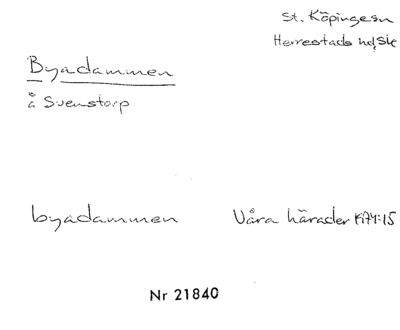 St. Köpinge sn
Herrestads hd, Sk
Byadammen
å Svenstorp
byadammen
Våra härader K74:15
Nr 21840